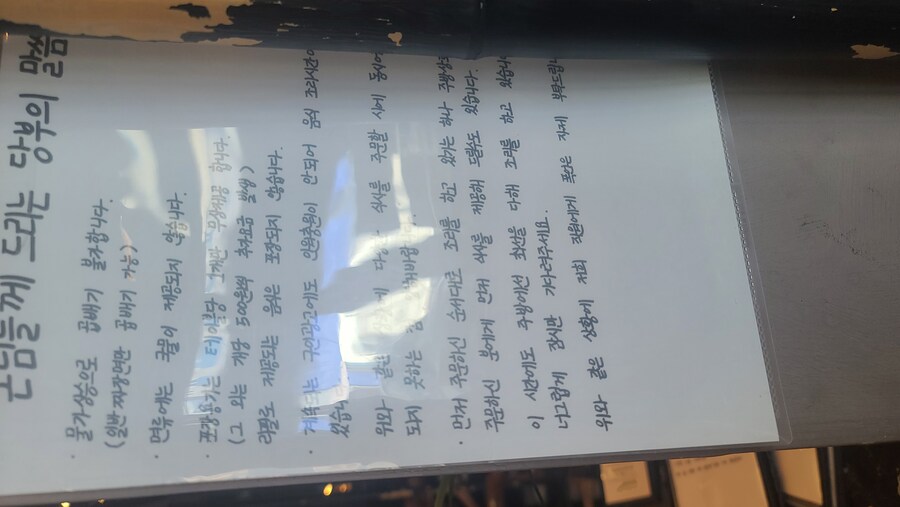 손님들께 드리는 당부의 말씀
· 물가상승으로 곱배기 불가합니다.
(일반 짜장면만 곱배기 가능)
· 면류에는 국물이 제공되지 않습니다.
· 포장용기는 테이블당 1개만 무상제공 합니다.
(그 외는 개당 500원씩 추가요금 발생)
리필로 제공되는 음식은 포장되지 않습니다.
· 계속되는 구인광고에도 인원충원이 안되어 음식 조리시간이
있습니
위와 같은 다양한 식사를 주문할 시에 동시에
되지 못하는 점
· 먼저 주문하신 순서대로 조리를 하고 있기는 하나 주방상
주문하신 분에게 먼저 식사를 제공해 드릴수도 있습니다.
이 시간에도 주방에선 최선을 다해 조리를 하고 있습니
너그럽게 잠시만 기다려주세요.
위와 같은 상황에 저희 직원에게 폭언은 자제 부탁드립니